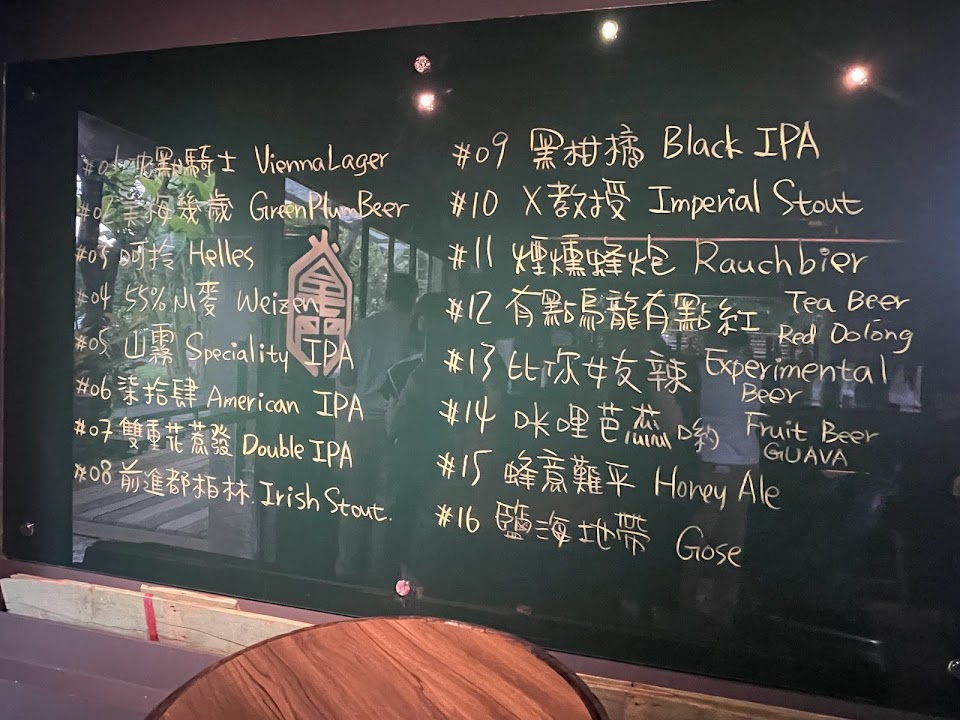 #01 點騎士 ViennaLager
#02 梅幾歲 GreenPlumBeer
#03 呵拎 Helles
#04 55%小麥 Weizen
#05 山霧 Speciality IPA
#06 柒拾肆 American IPA
#07 雙重花蒸發 Double IPA
#08 前進都柏林 Irish Stout.
#09 黑柑橘 Black IPA
#10 X教授 Imperial Stout
#11 煙燻蜂炮 Rauchbier
#12 有點烏龍有點紅 Tea Beer
Red Oolong
#13 比你女友辣 Experimental
Beer
#14 咪哩芭蕉喲 Fruit Beer
GUAVA
#15 蜂意難平 Honey Ale
#16 鹽海地帶 Gose